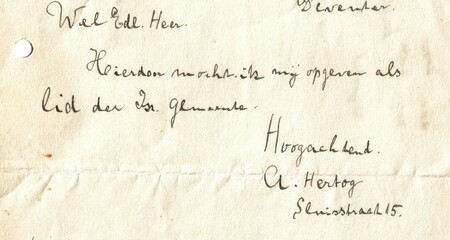 Deventer.
Wel Edl. Heer.
Hierdoor mocht ik mij opgeven als
lid der Isr. Gemeente.
Hoogachtend.
A. Hertog
Sluisstraat 15.